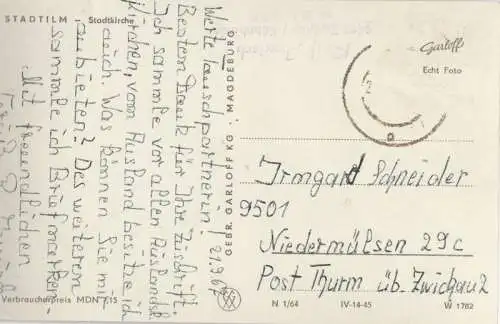 STADTILM Stadtkirche
21.9.67
Werte Tauschpartnerin!
Besten Dank für Ihre Zuschrift.
Ich sammle vor allen Auslandsk.
Kirchen, vom Ausland besitze ich
auch. Was können Sie mir
anbieten? Des weiteren
sammle ich Briefmarken.
Mit freundlichen
Verbraucherpreis MDN 0,15
GEBR. GARLOFF KG, MAGDEBURG
Garloff
Echt Foto
Irmgard Schneider
9501
Niedermülsen 29c
Post Thurm üb. Zwickau 2
N 1/64 IV-14-45 W 1762